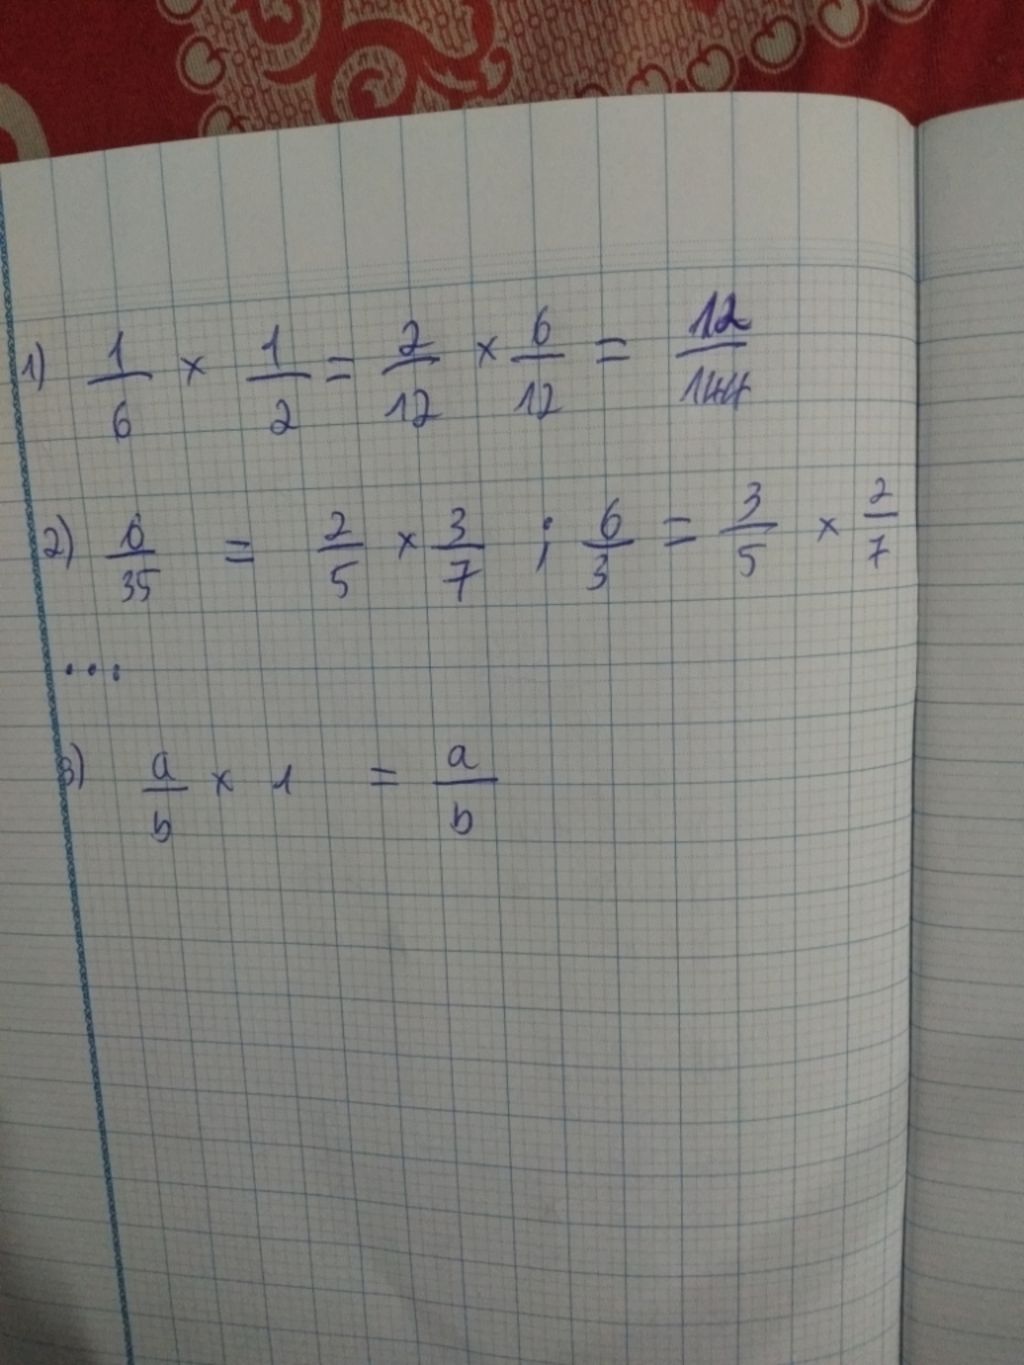 1) 1/6 × 1/2 = 2/12 × 6/12 = 12/144
2) 6/35 = 2/5 × 3/7 ; 6/3 = 3/5 × 2/7
...
3) a/b × 1 = a/b